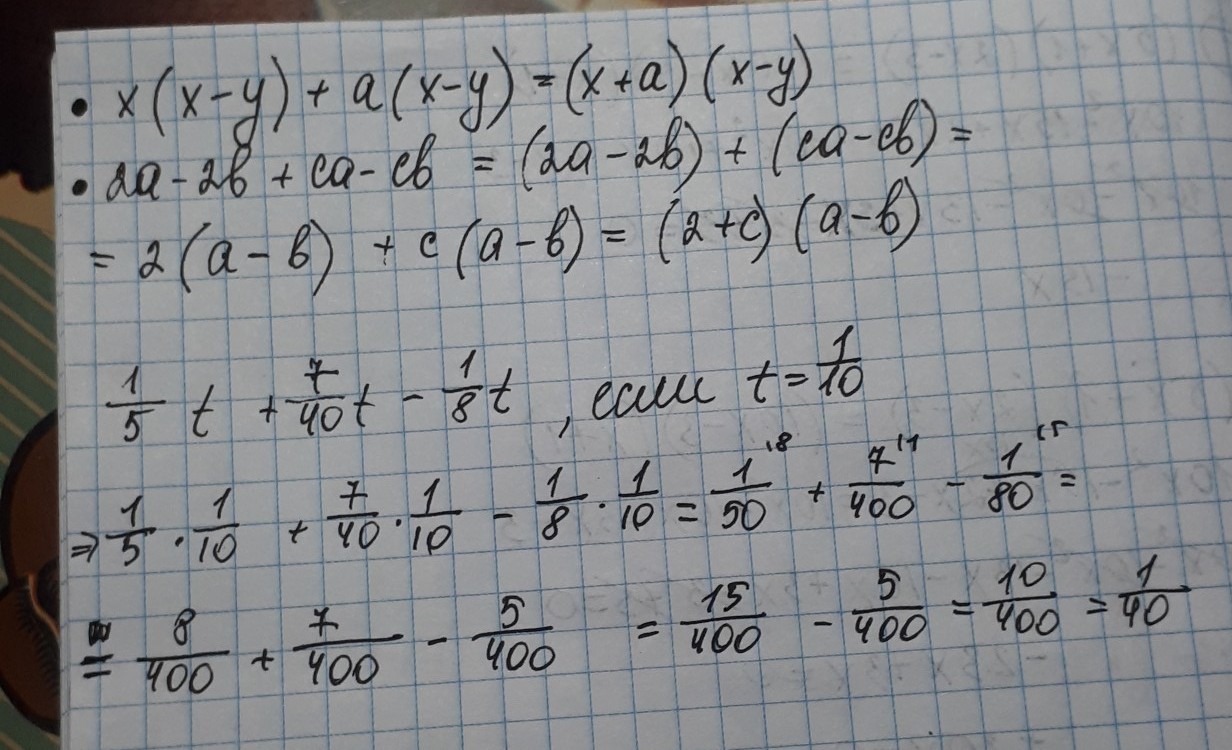 • x(x-y) + a(x-y) = (x+a)(x-y)
• 2a-2в + ca-cв = (2a-2в) + (ca-cв) =
= 2(a-в) + c(a-в) = (2+c)(a-в)
1/5 t + 7/40 t - 1/8 t, если t = 1/10
⇒ 1/5 · 1/10 + 7/40 · 1/10 - 1/8 · 1/10 = 1/50 ⁽⁸ + 7/400 ⁽¹ - 1/80 ⁽⁵ =
= 8/400 + 7/400 - 5/400 = 15/400 - 5/400 = 10/400 = 1/40